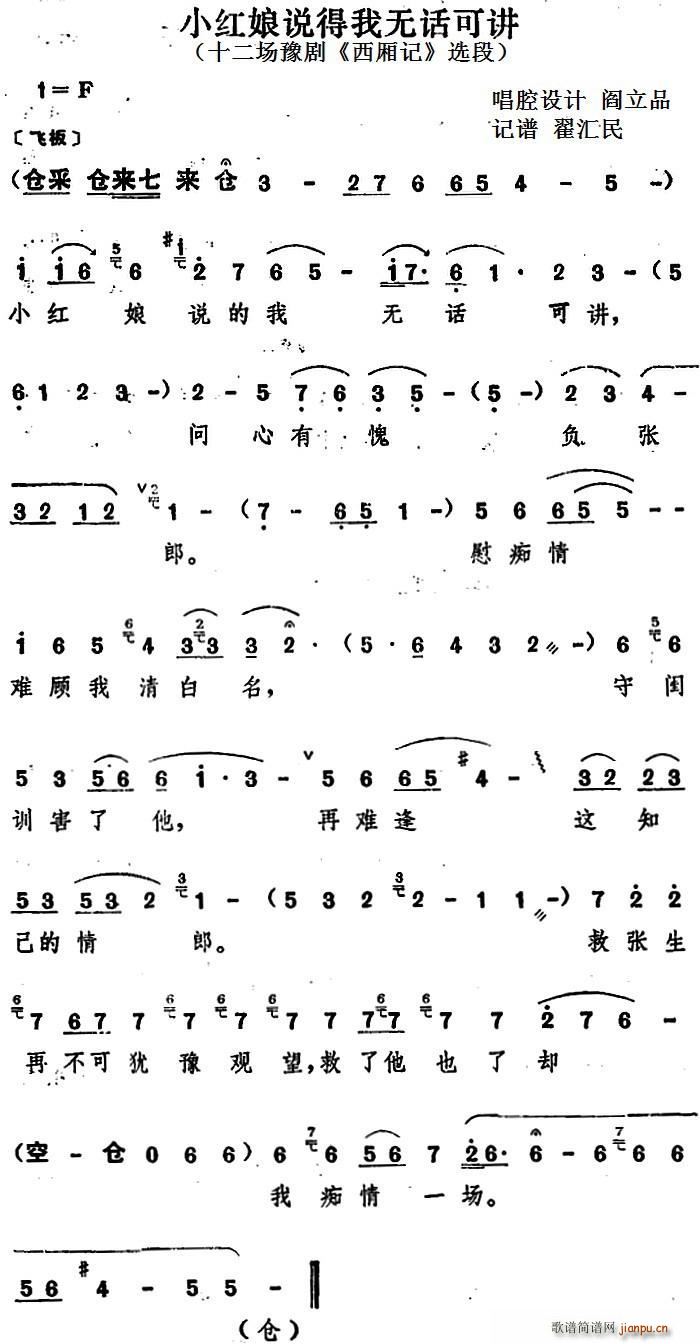 小红娘说得我无话可讲
（十二场豫剧《西厢记》选段）
1=F
唱腔设计 阎立品
〔飞板〕
记谱 翟汇民
（仓采 仓来七 来 仓 3 - 2 7 6 6 5 4 - 5 -）
i i 6 5 6 #i 2 7 6 5 - i 7· 6 1· 2 3 -（5
小 红 娘 说 的 我 无 话 可 讲，
6 1 2 3 -）2 - 5 7 6 3 5 -（5 -）2 3 4 -
问 心 有 愧 负 张
3 2 1 2 ∨ 2 1 -（7 - 6 5 1 -）5 6 6 5 5 - -
郎。 慰 痴 情
i 6 5 6 4 3 2 3 3 2·（5· 6 4 3 2 -）6 5 6
难 顾 我 清 白 名， 守 闺
5 3 5· 6 6 i· 3 - ∨ 5 6 6 5 #4 - 3 2 2 3
训 害 了 他， 再 难 逢 这 知
5 3 5 3 2 3 1 -（5 3 2 3 2 - 1 1 -）7 2 2
己 的 情 郎。 救 张 生
6 7 6 7 7 6 7 6 7 6 7 7 6 7 6 7 7 2 7 6 -
再 不 可 犹 豫 观 望，救 了 他 也 了 却
（空 - 仓 0 6 6）6 7 6 5 6 7 2 6· 6 - 6 7 6 6
我 痴 情 一 场。
5 6 #4 - 5 5 -
（仓）
歌谱简谱网
jianpu.cn